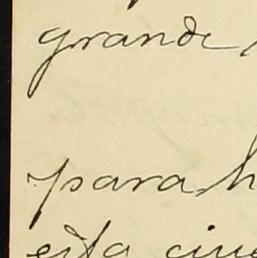 grande
para h
esta ciu